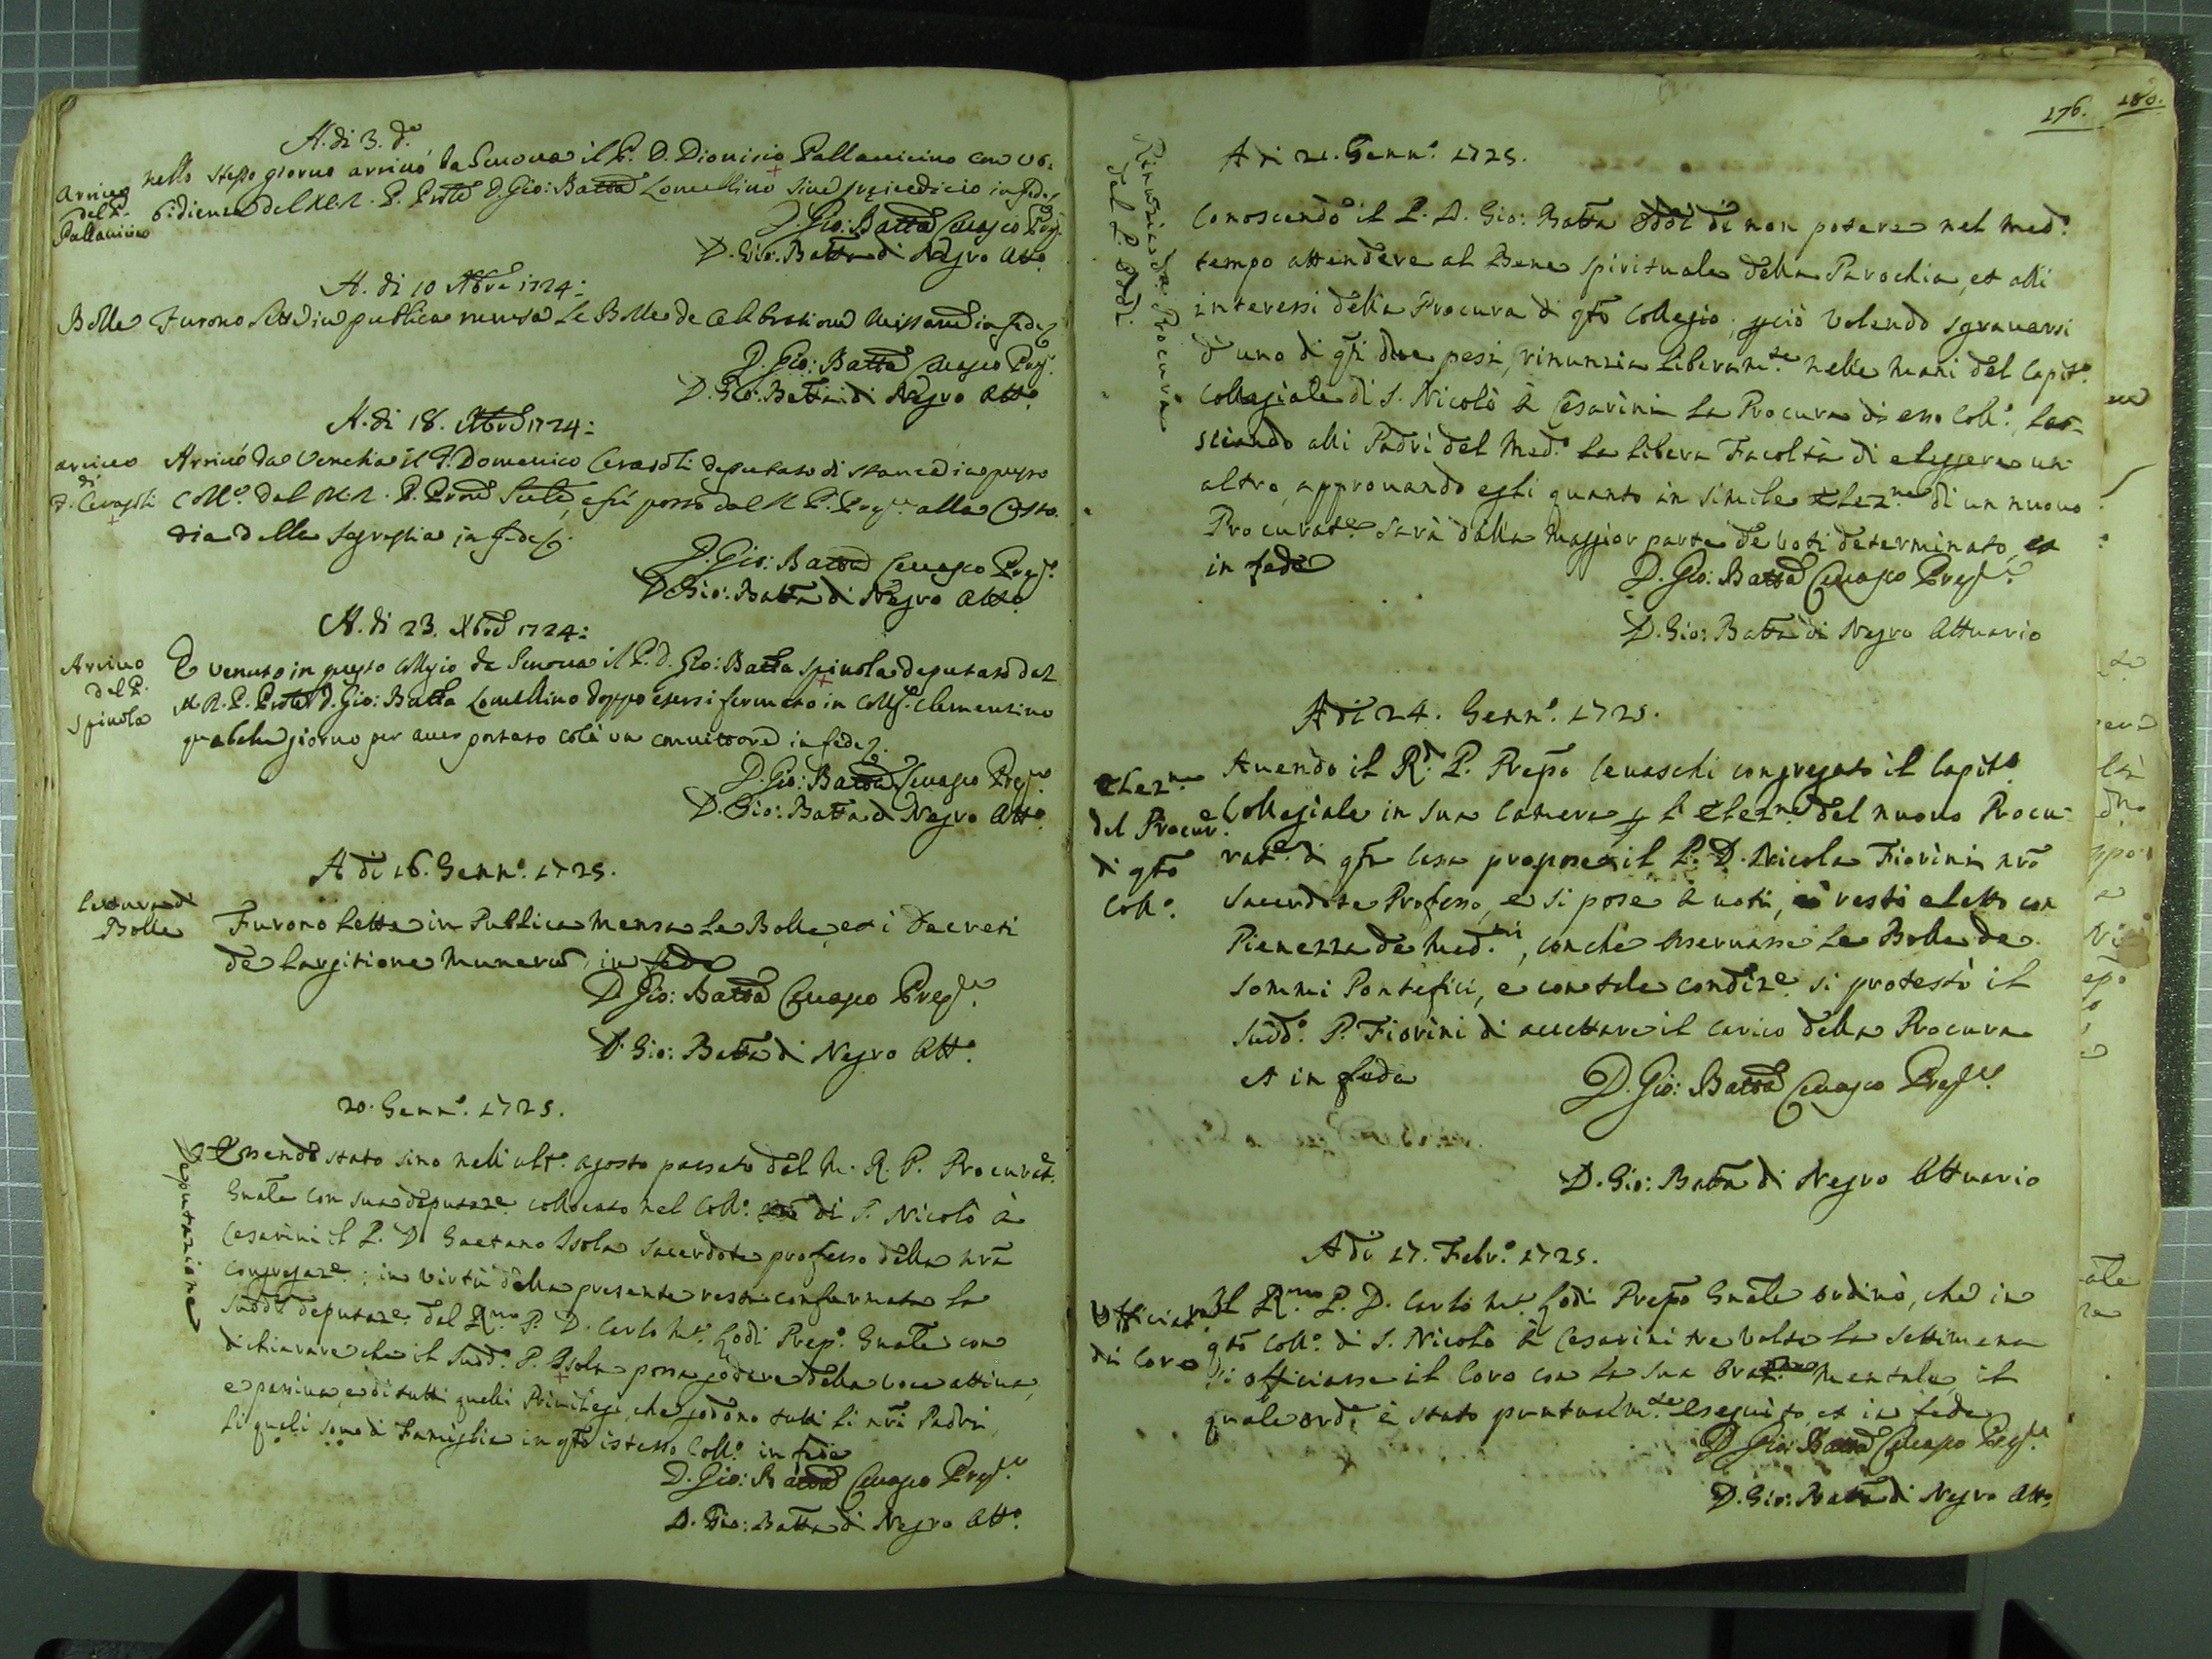 A. di 3. d.o
Arrivo
del P.
Pallavicino
nello stesso giorno arrivò da Genova il P. D. Dionisio Pallavicino con ub:
bidienza del M.R. P. Prõle D. Gio: Batta Lomellino sine preiudicio in fede
D. Gio: Batta Cevasco Prep.to
D. Gio: Batta di Negro Att.o
A. di 10 Xbre 1724:
Bolle
Furono lette in publica mensa le Bolle de Celebratione Missarum in fede
D. Gio: Batta Cevasco Prep.
D. Gio: Batta di Negro Att.o
A. di 18. Xbre 1724:
arrivo
di
P. Cerasoli
Arrivò da Venetia il P. Domenico Cerasoli deputato di stanza in questo
Coll.o dal M.R. P. Prov.le e fù posto dal R P. Prep.to alla Custo.
dia della Sagrestia in fede
D. Gio: Batta Cevasco Prep.to
D. Gio: Batta di Negro Att.o
A. di 23. Xbre 1724:
Arrivo
del P.
Spinola
È venuto in questo Collegio da Genova il P. D. Gio: Batta Spinola deputato dal
M.R. P. Prõle D. Gio: Batta Lomellino doppo essersi fermato in Coll.o Clementino
qualche giorno per aver portato colà un convittore in fede
D. Gio: Batta Cevasco Prep.to
D. Gio: Batta di Negro Att.o
A di 16. Genn.o 1725.
Lettura di
Bolle
Furono lette in Publica Mensa le Bolle, et i Decreti
de Largitione Munerum, in fede
D. Gio: Batta Cevasco Prep.to
D. Gio: Batta di Negro Att.o
20. Genn.o 1725.
Deputazione
Essendo stato sino nell'ult.o Agosto passato dal M. R. P. Procurat.e
Gnãle con sua deputaz.e collocato nel Coll.o di S. Nicolò à
Cesarini il P. D. Gaetano Isola Sacerdote professo della nrã
Congregaz.e; in virtù della presente resta confermata la
sudd.a deputaz.e dal R.mo P. D. Carlo M.a Lodi Prep.o Gnãle con
dichiarare che il sudd.o P. Isola possa godere della voce attiva,
e passiva, e di tutti quelli Privilegi, che godono tutti li nrĩ Padri,
li quali sono di Famiglia in qſto istesso Coll.o in fede
D. Gio: Batta Cevasco Prep.to
D. Gio: Batta di Negro Att.o
176.
180.
A di 21. Genn.o 1725.
Rinunzia della Procura
del P. Oddi.
Conoscendo il P. D. Gio: Batta Oddi di non potere nel med.o
tempo attendere al Bene spirituale della Parochia, et alli
interessi della Procura di qſto Collegio; p̱ciò volendo sgravarsi
d'uno di qſti due pesi, rinunzia liberam.te nelle mani del Capit.o
Collegiale di S. Nicolò à Cesarini la Procura di esso Coll.o, la-
sciando alli Padri del med.o la libera Facoltà di eleggere un'
altro, approvando egli quanto in simile elez.ne di un nuovo
Procurat.e sarà dalla maggior parte de voti determinato, et
in fede
D. Gio: Batta Cevasco Prep.to
D. Gio: Batta di Negro Attuario
A di 24. Genn.o 1725.
Elez.ne
del Procur.e
di qſto
Coll.o
Avendo il R.d P. Prepo Cevaschi congregato il Capit.o
Collegiale in sua Camera p̱ l'Elez.ne del nuovo Procu-
rat.e di qſta Casa propose il P. D. Nicola Fiorini nrõ
Sacerdote Professo, e si pose a voti, e restò eletto con
Pienezza de med.mi, con che osservasse le Bolle de
Sommi Pontefici, e con tale condiz.e si protestò il
sudd.o P. Fiorini di accettare il carico della Procura
et in fede
D. Gio: Batta Cevasco Prep.to
D. Gio: Batta di Negro Attuario
A di 17. Febr.o 1725.
Officiat.a
di Coro
Il R.mo P. D. Carlo M.a Lodi Prepo Gnãle ordinò, che in
qſto Coll.o di S. Nicolò à Cesarini tre volte la settimana
si officiasse il Coro con la sua Oraz.ne Mentale, il
quale ord.e è stato puntualm.te eseguito, et in fede
D. Gio: Batta Cevasco Prep.to
D. Gio: Batta di Negro Att.o